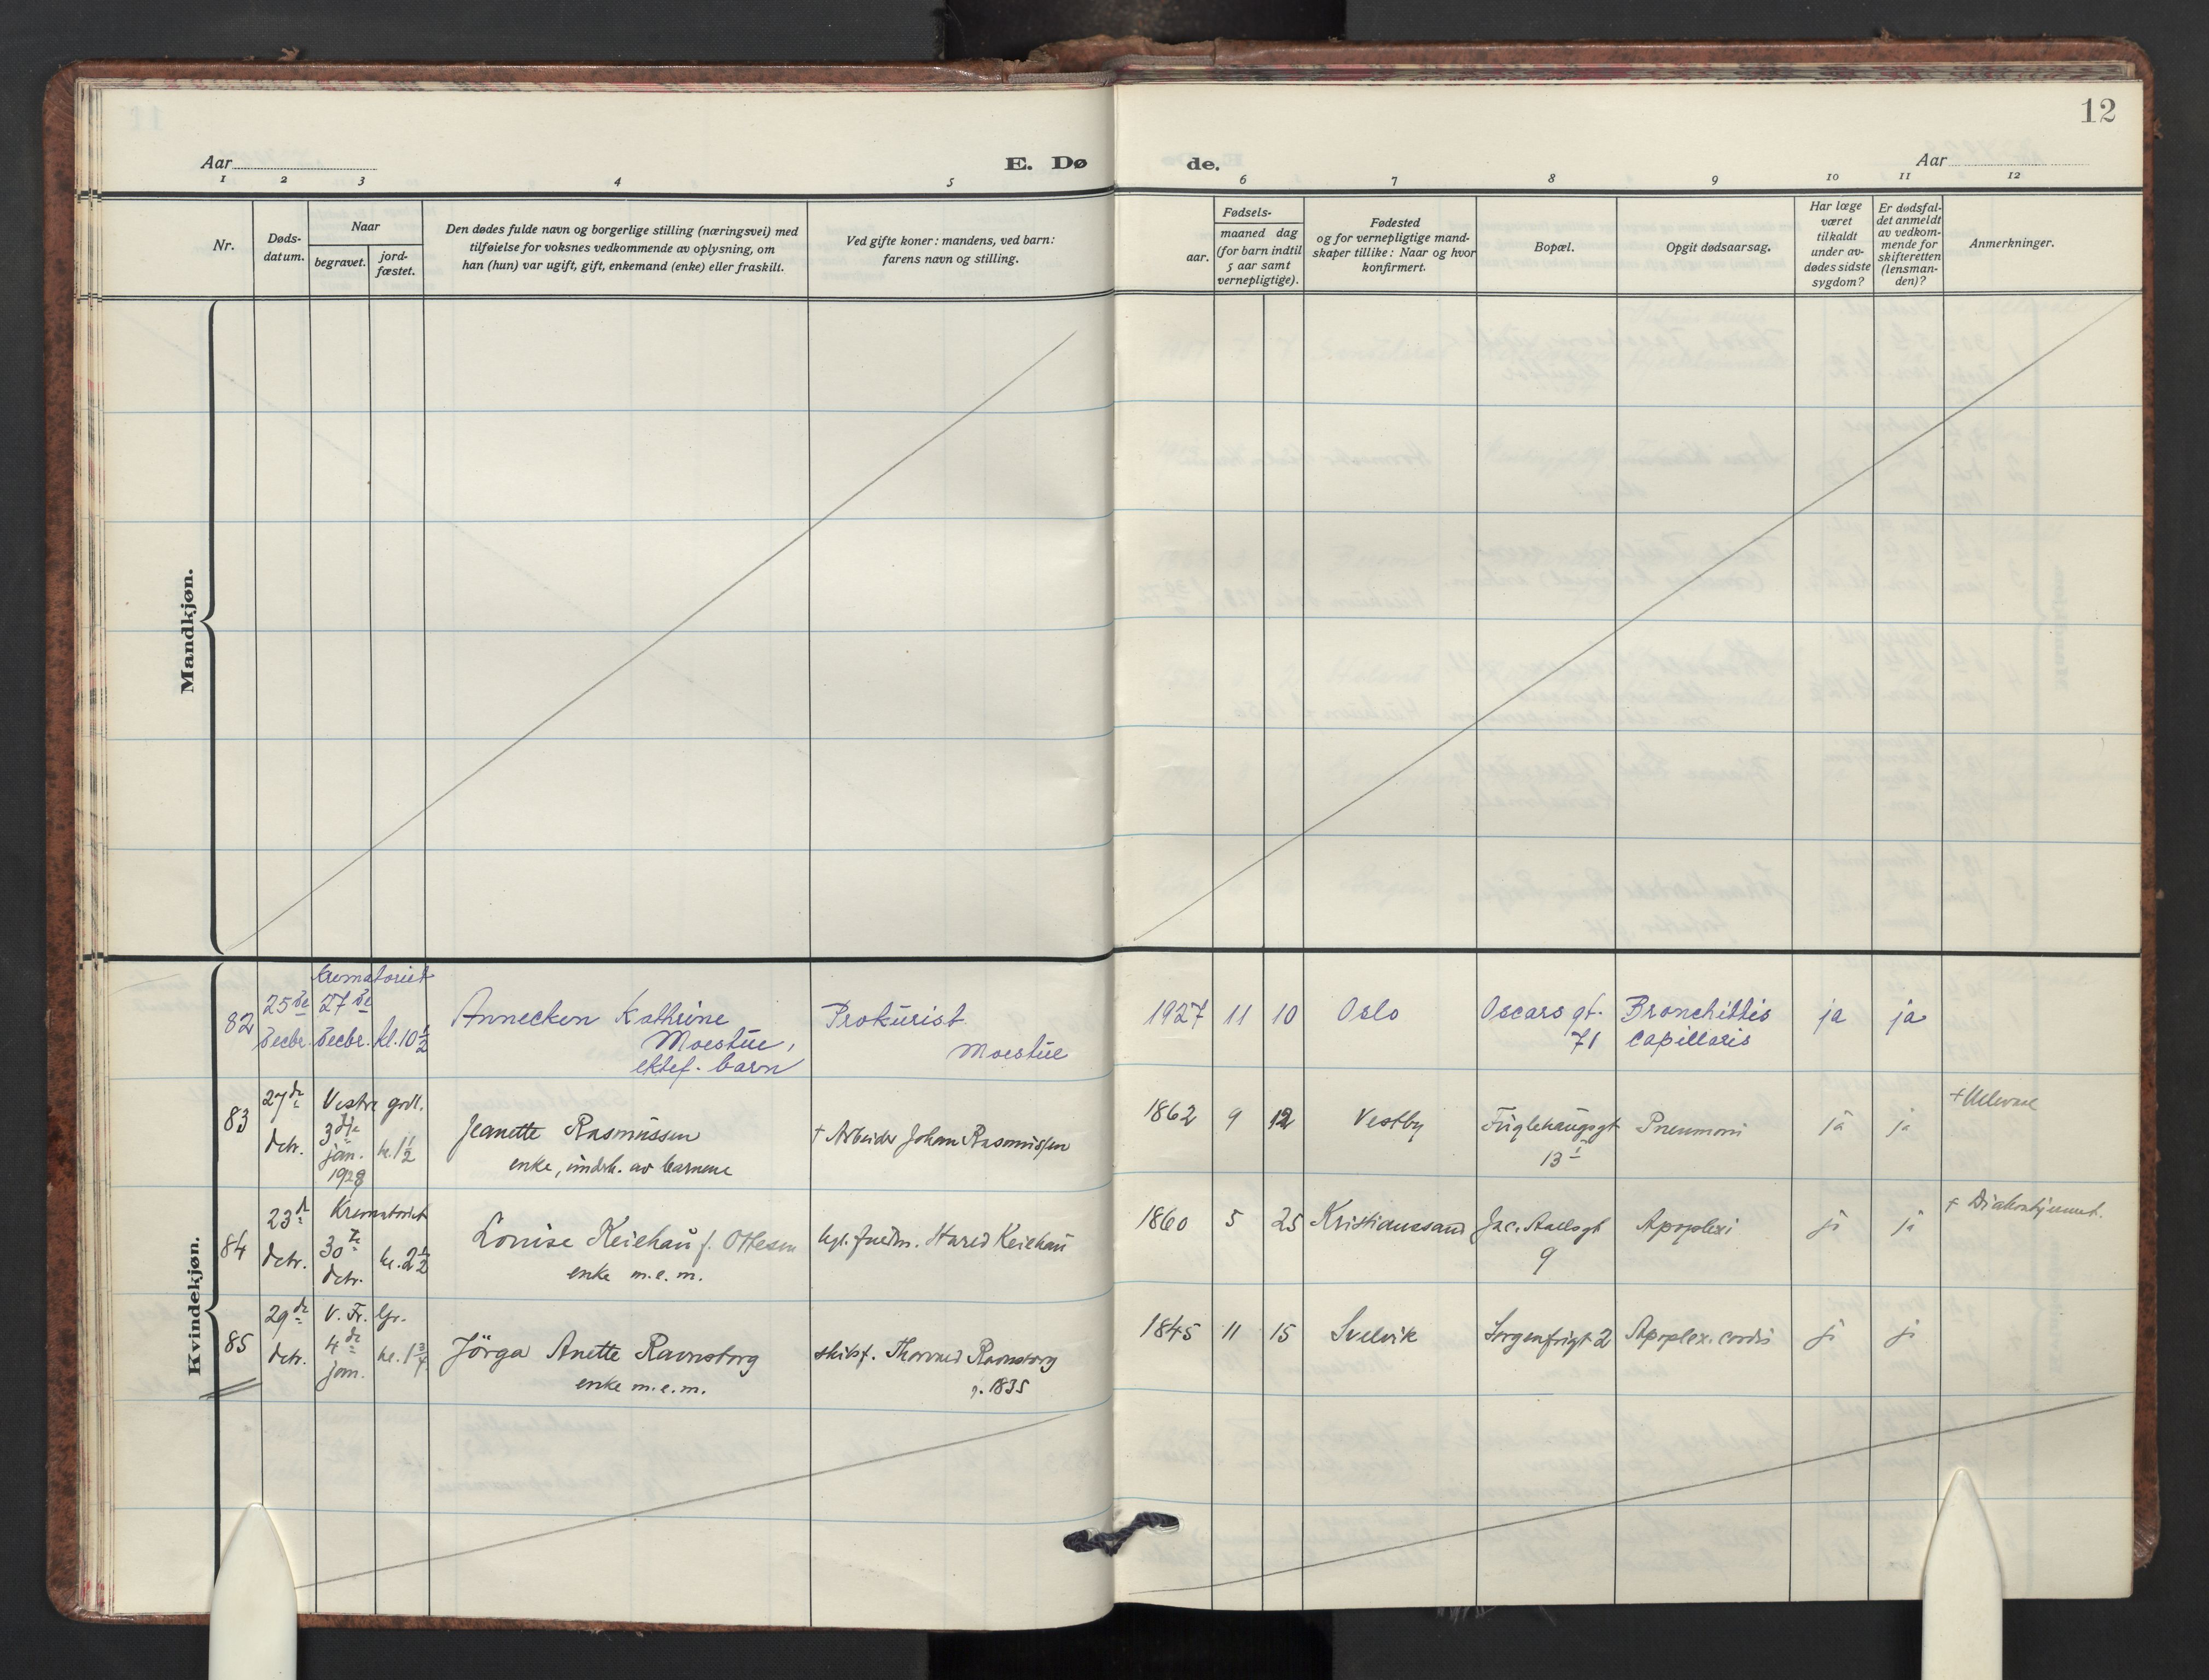 12
Aar
E. Dø
de.
Aar
1 2 3 4 5 6 7 8 9 10 11 12
Nr.
Døds-
datum.
Naar
begravet.
jord-
fæstet.
Den dødes fulde navn og borgerlige stilling (næringsvei) med
tilføielse for voksnes vedkommende av oplysning, om
han (hun) var ugift, gift, enkemand (enke) eller fraskilt.
Ved gifte koner: mandens, ved barn:
farens navn og stilling.
Fødsels-
aar.
maaned dag
(for barn indtil
5 aar samt
vernepligtige).
Fødested
og for vernepligtige mand-
skaper tillike: Naar og hvor
konfirmert.
Bopæl.
Opgit dødsaarsag.
Har læge
været
tilkaldt
under av-
dødes sidste
sygdom?
Er dødsfal-
det anmeldt
av vedkom-
mende for
skifteretten
(lensman-
den)?
Anmerkninger.
Mandkjøn.
Kvindekjøn.
82
25de
Decbr.
Krematoriet
27de
Decbr.
kl. 10 1/2
Annecken Kathrine
Moestüe,
ektef. barn
Prokürist
Moestüe
1927 11 10 Oslo
Oscars gt.
71
Bronchittis
capillaris
ja ja
83
27de
dcbr.
Vestre grvl.
3dje
jan.
1928
kl. 1 1/2
Jeanette Rasmüssen
enke, ündrh. av barnene
+ Arbeider Johan Rasmüssen
1862 9 12 Vestby
Füglehaügsgt
13 I
Pneumoni
ja ja
+ Ullevaal
84
23d
dcbr.
Krematoriet
30te
dcbr.
kl. 2 1/2
Louise Keilhaü f. Ottesen
enke m.e.m.
Keilhaü
1860 5 25 Kristianssand
Jac. Aallsgt
9
Apoplexi
ja ja
+ Diakonhjemmet.
85
29de
dcbr.
V. Fr. Gr.
4de
jan.
kl. 1 3/4
Jörga Anette Ravnsborg
enke m.e.m.
skibsf. Ravnsborg
f. 1835
1845 11 15 Svelvik
Sorgenfrigt 2
Apoplex. cordis
ja ja